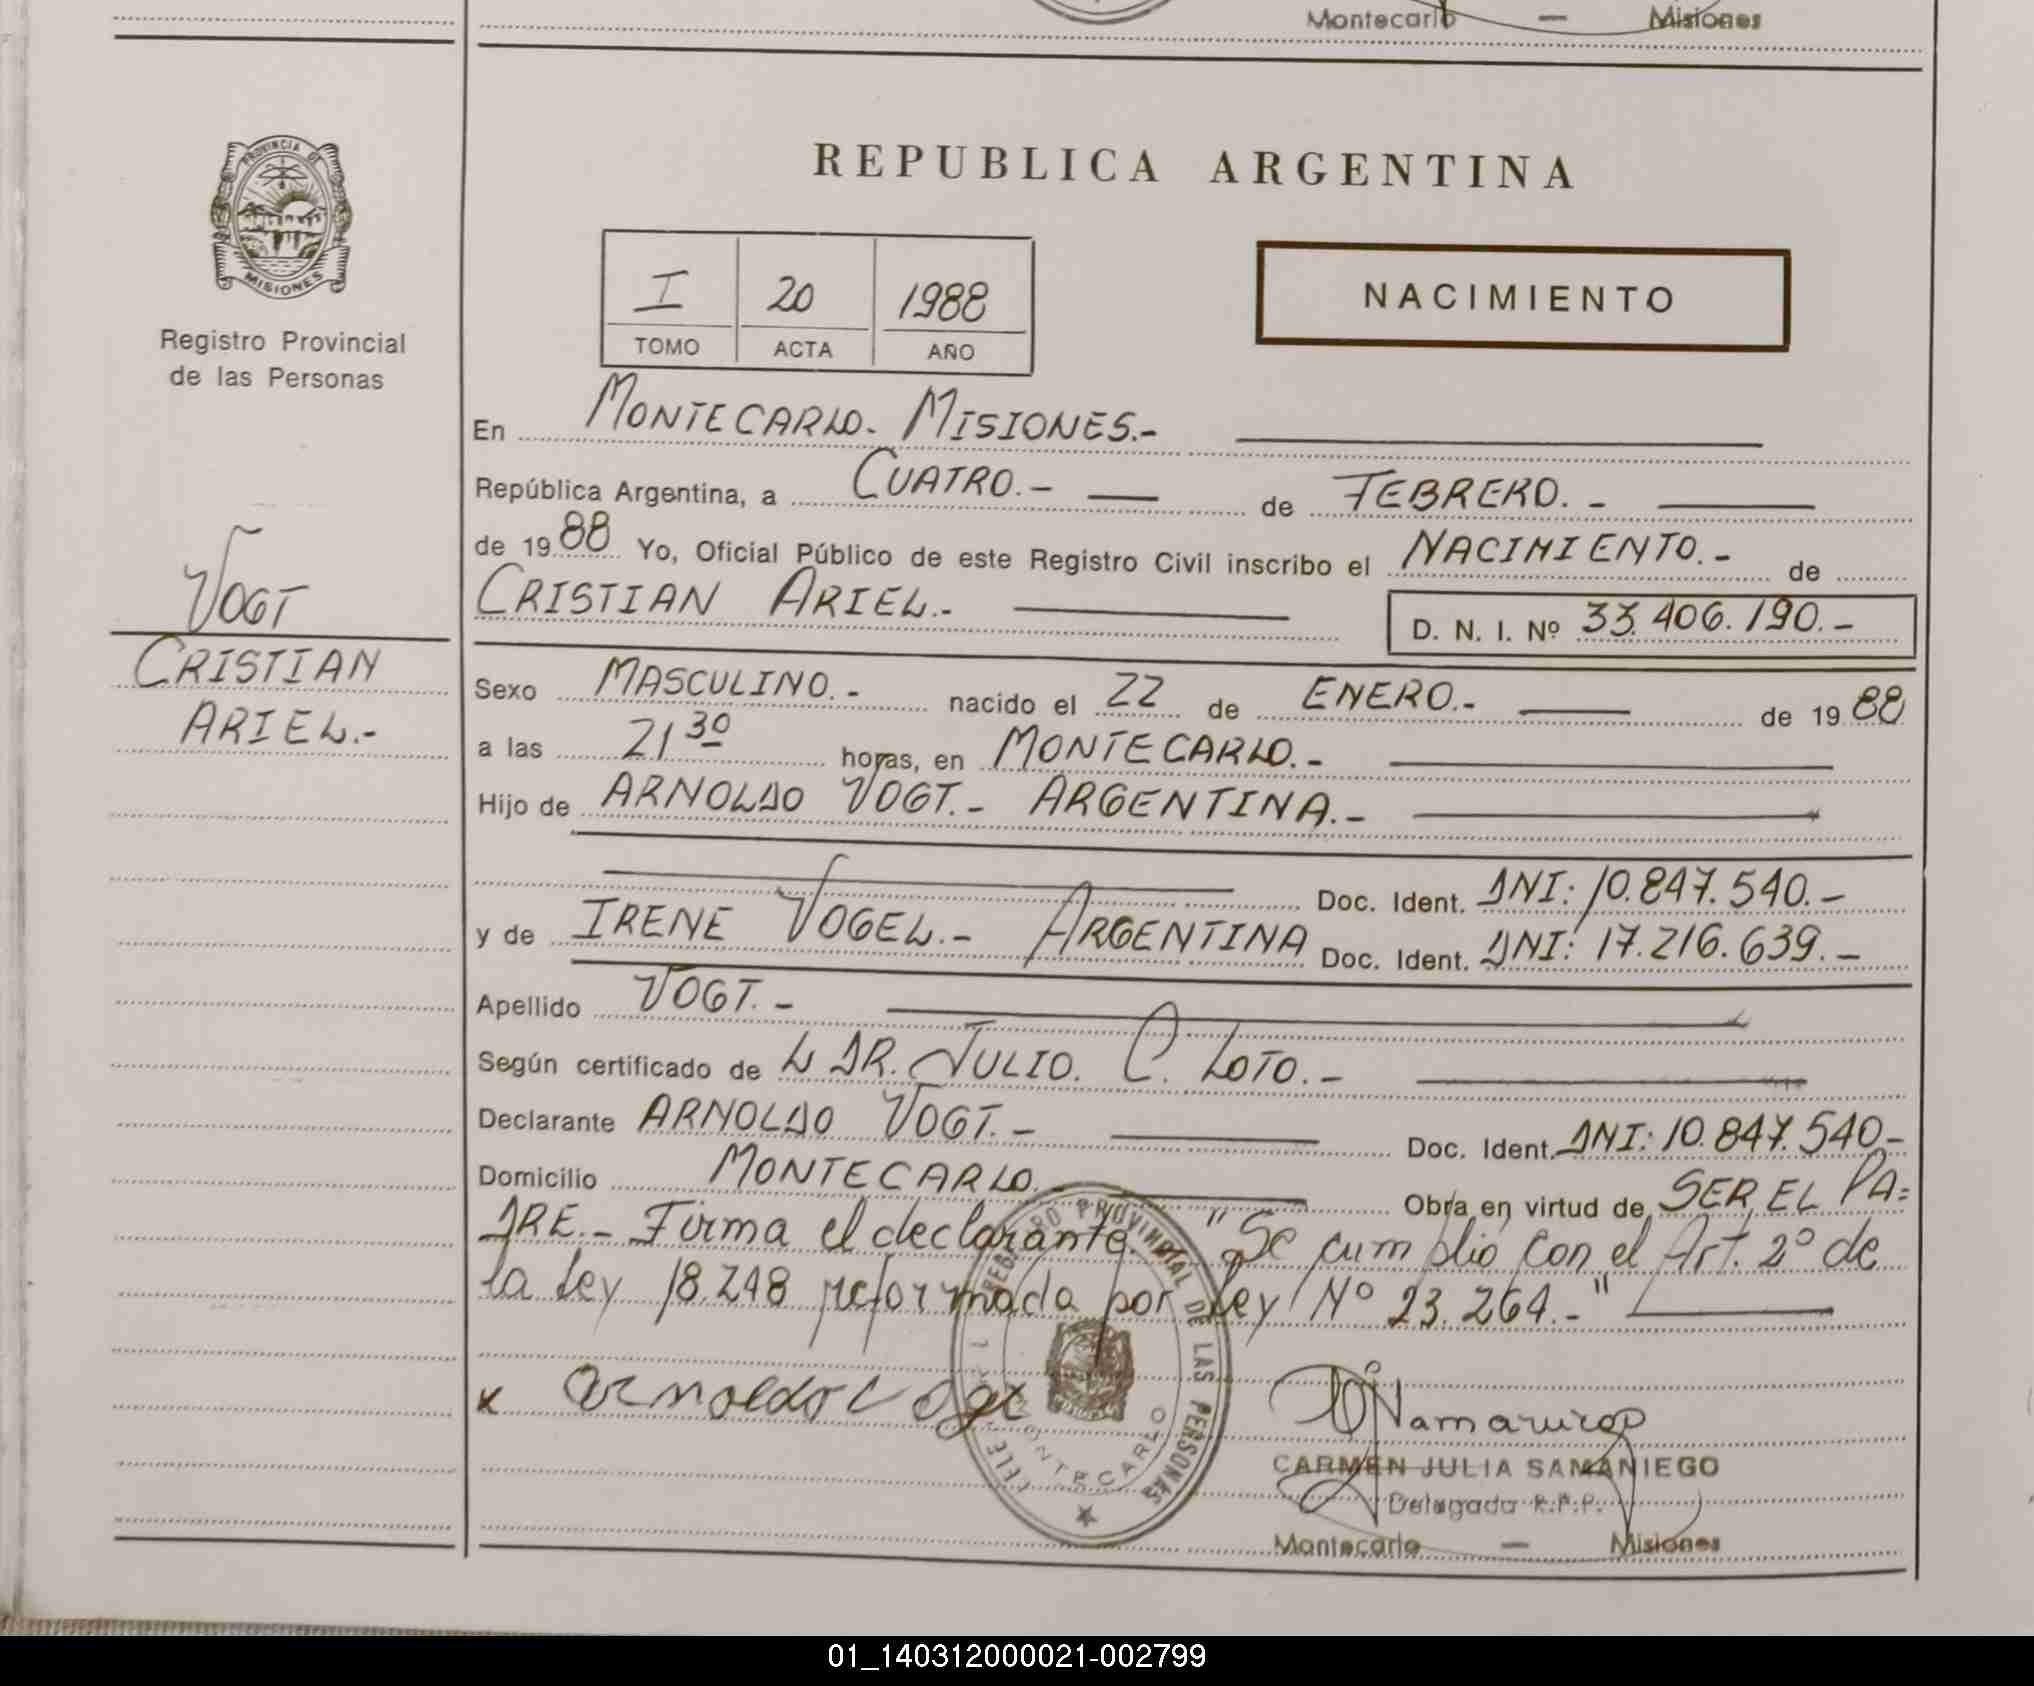 Montecarlo — Misiones
PROVINCIA DE
MISIONES
Registro Provincial
de las Personas
REPUBLICA ARGENTINA
I 20 1988
TOMO ACTA AÑO
NACIMIENTO
En MONTECARLO. MISIONES.-
República Argentina, a CUATRO.- de FEBRERO.-
de 1988 Yo, Oficial Público de este Registro Civil inscribo el NACIMIENTO.- de
CRISTIAN ARIEL.- D. N. I. Nº 33.406.190.-
VOGT
CRISTIAN
ARIEL.-
Sexo MASCULINO.- nacido el 22 de ENERO.- de 1988
a las 21 30 horas, en MONTECARLO.-
Hijo de ARNOLDO VOGT.- ARGENTINA.-
Doc. Ident. DNI: 10.847.540.-
y de IRENE VOGEL.- ARGENTINA Doc. Ident. DNI: 17.216.639.-
Apellido VOGT.-
Según certificado de L DR. JULIO. C. LOTO.-
Declarante ARNOLDO VOGT.- Doc. Ident. DNI: 10.847.540-
Domicilio MONTECARLO. Obra en virtud de SER EL PA=
DRE.- Firma el declarante. "Se cumplió con el Art. 2º de
la Ley 18.248 reformada por Ley Nº 23.264.-"
x Arnoldo Vogt
REGISTRO PROVINCIAL DE LAS PERSONAS
MONTECARLO
CARMEN JULIA SAMANIEGO
Delegada R.P.P.
Montecarlo — Misiones
01_140312000021-002799